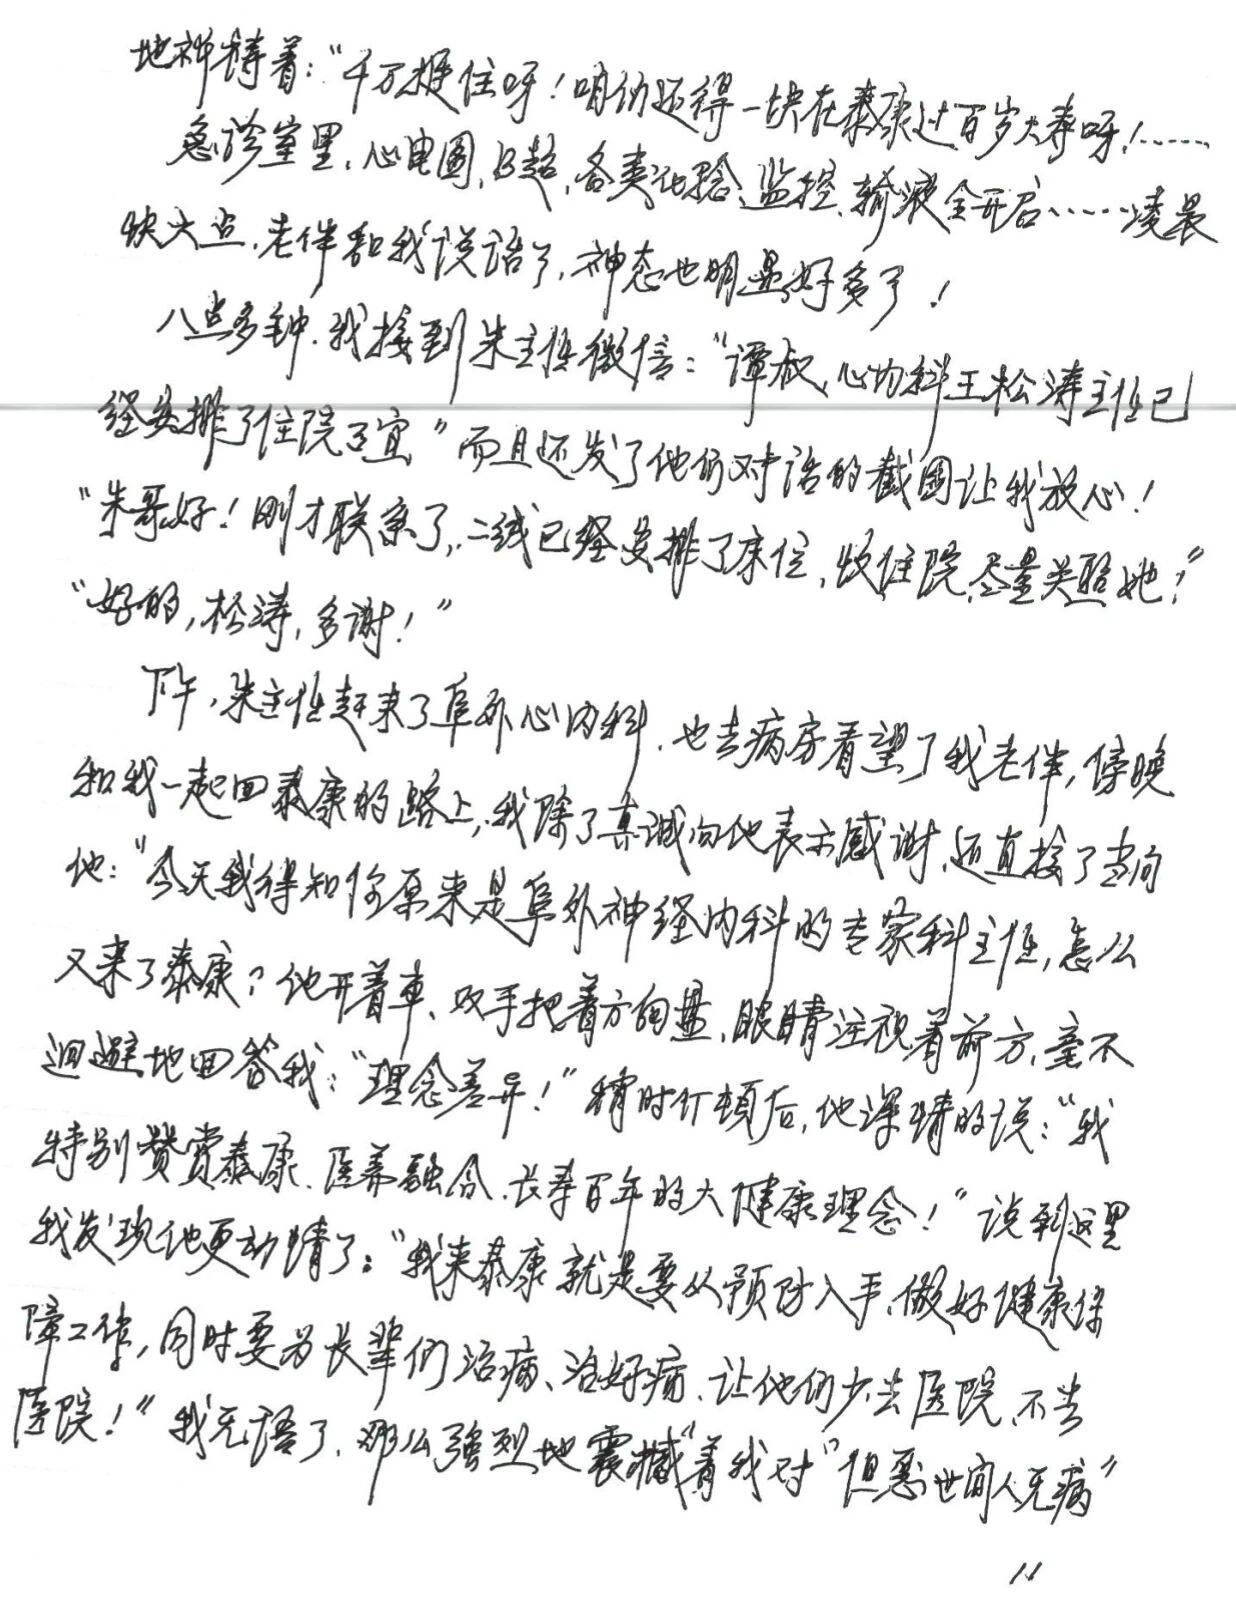 地祈祷着：“千万挺住呀！咱们还得一块在泰康过百岁大寿呀！……
急诊室里，心电图，B超，各类化验、监控、输液全开启……凌晨
快六点，老伴和我说话了，神态也明显好多了！
八点多钟，我接到朱主任微信：“谭叔、心内科王松涛主任已
经安排了住院事宜”而且还发了他们对话的截图让我放心！
“朱哥好！刚才联系了，二线已经安排了床位，收住院，尽量关照她！”
“好的，松涛，多谢！”
下午，朱主任赶来了阜外心内科，也去病房看望了我老伴，傍晚
和我一起回泰康的路上，我除了真诚向他表示感谢，还直接了当问
他：“今天我得知你原来是阜外神经内科的专家科主任，怎么
又来了泰康？他开着车、双手把着方向盘，眼睛注视着前方，毫不
迴避地回答我：“理念差异！”稍时仃顿后，他深情的说：“我
特别赞赏泰康、医养融合、长寿百年的大健康理念！”说到这里
我发现他更动情了：“我来泰康就是要从预防入手，做好健康保
障工作，同时要为长辈们治病、治好病，让他们少去医院，不去
医院！”我无语了，那么强烈地震撼着我对“但愿世间人无病”
11